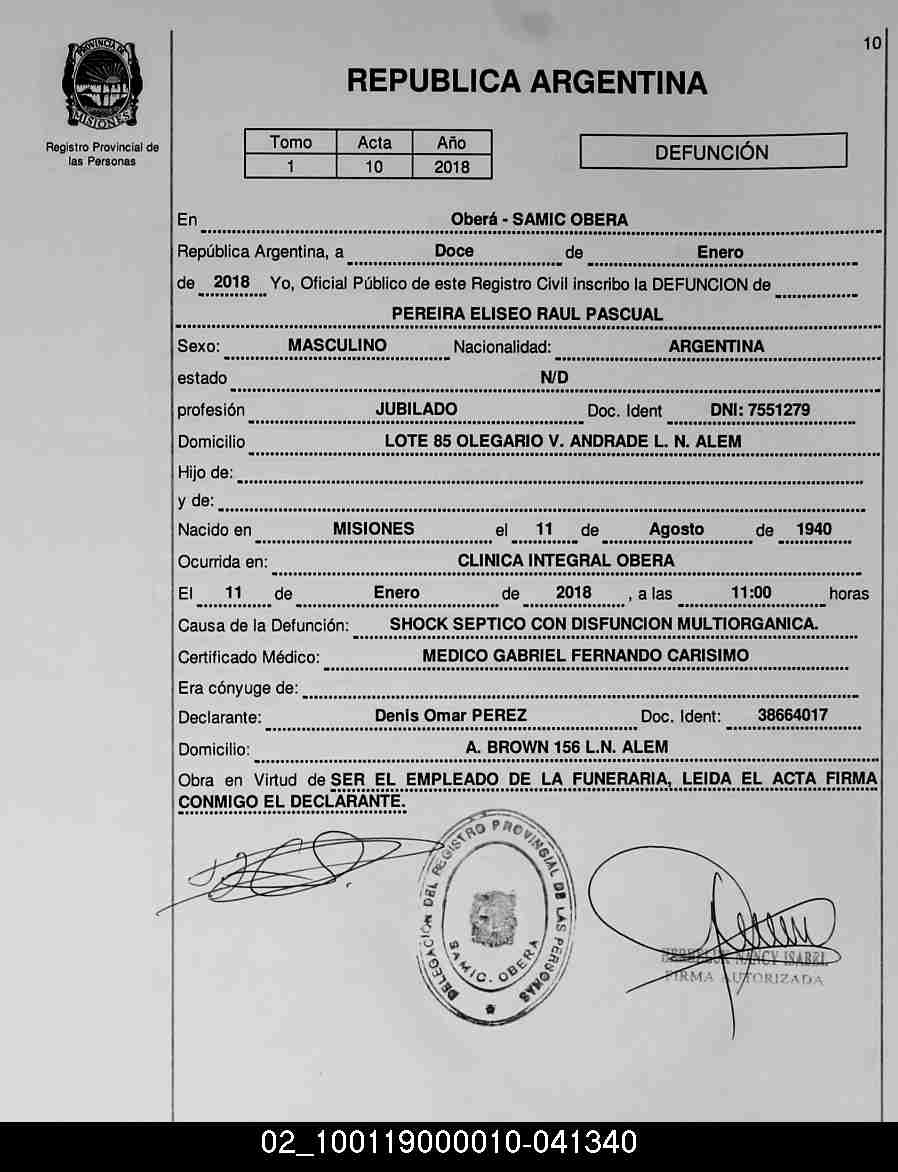 10
PROVINCIA DE
MISIONES
Registro Provincial de
las Personas
REPUBLICA ARGENTINA
Tomo Acta Año
1 10 2018
DEFUNCIÓN
En Oberá - SAMIC OBERA
República Argentina, a Doce de Enero
de 2018 Yo, Oficial Público de este Registro Civil inscribo la DEFUNCION de
PEREIRA ELISEO RAUL PASCUAL
Sexo: MASCULINO Nacionalidad: ARGENTINA
estado N/D
profesión JUBILADO Doc. Ident DNI: 7551279
Domicilio LOTE 85 OLEGARIO V. ANDRADE L. N. ALEM
Hijo de:
y de:
Nacido en MISIONES el 11 de Agosto de 1940
Ocurrida en: CLINICA INTEGRAL OBERA
El 11 de Enero de 2018 , a las 11:00 horas
Causa de la Defunción: SHOCK SEPTICO CON DISFUNCION MULTIORGANICA.
Certificado Médico: MEDICO GABRIEL FERNANDO CARISIMO
Era cónyuge de:
Declarante: Denis Omar PEREZ Doc. Ident: 38664017
Domicilio: A. BROWN 156 L.N. ALEM
Obra en Virtud de SER EL EMPLEADO DE LA FUNERARIA, LEIDA EL ACTA FIRMA
CONMIGO EL DECLARANTE.
DELEGACIÓN DEL REGISTRO PROVINCIAL DE LAS PERSONAS
SAMIC. OBERA
NANCY ISABEL
FIRMA AUTORIZADA
02_100119000010-041340